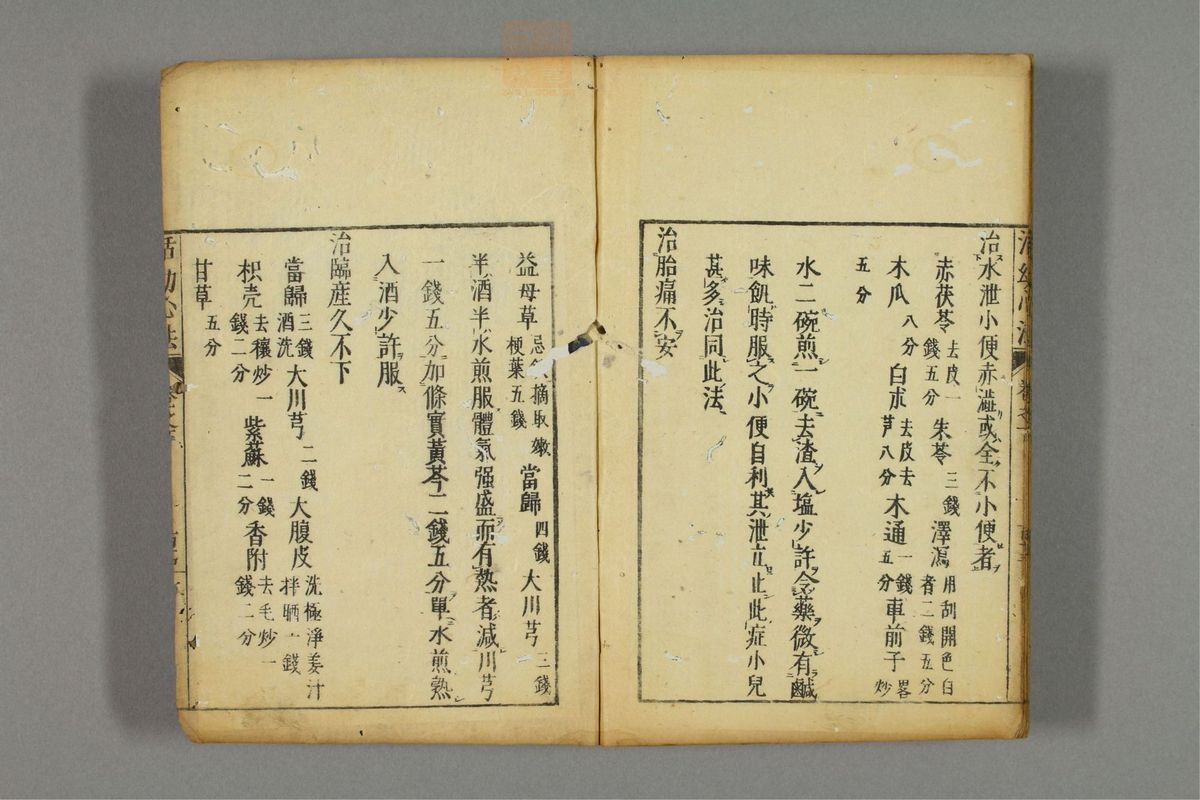 治水泄小便赤澁或全不小便者
赤茯苓去皮一錢五分朱苓三錢澤瀉用刮開色白者二錢五分
木瓜八分白朮去皮去芦八分木通一錢五分車前子畧炒
五分
水二碗煎一碗去渣入塩少許令藥微有鹹
味飢時服之小便自利其泄立止此症小兒
甚多治同此法
治胎痛不安
益母草忌摘取嫩梗葉五錢當歸四錢大川芎三錢
半酒半水煎服體氣强盛而有熱者減川芎
一錢五分加條實黃芩二錢五分單水煎熟
入酒少許服
治臨産久不下
當歸三錢酒洗大川芎二錢大腹皮洗極淨姜汁拌晒一錢
枳壳去穰炒一錢二分紫蘇一錢二分香附去毛炒一錢二分
甘草五分
活幼心法